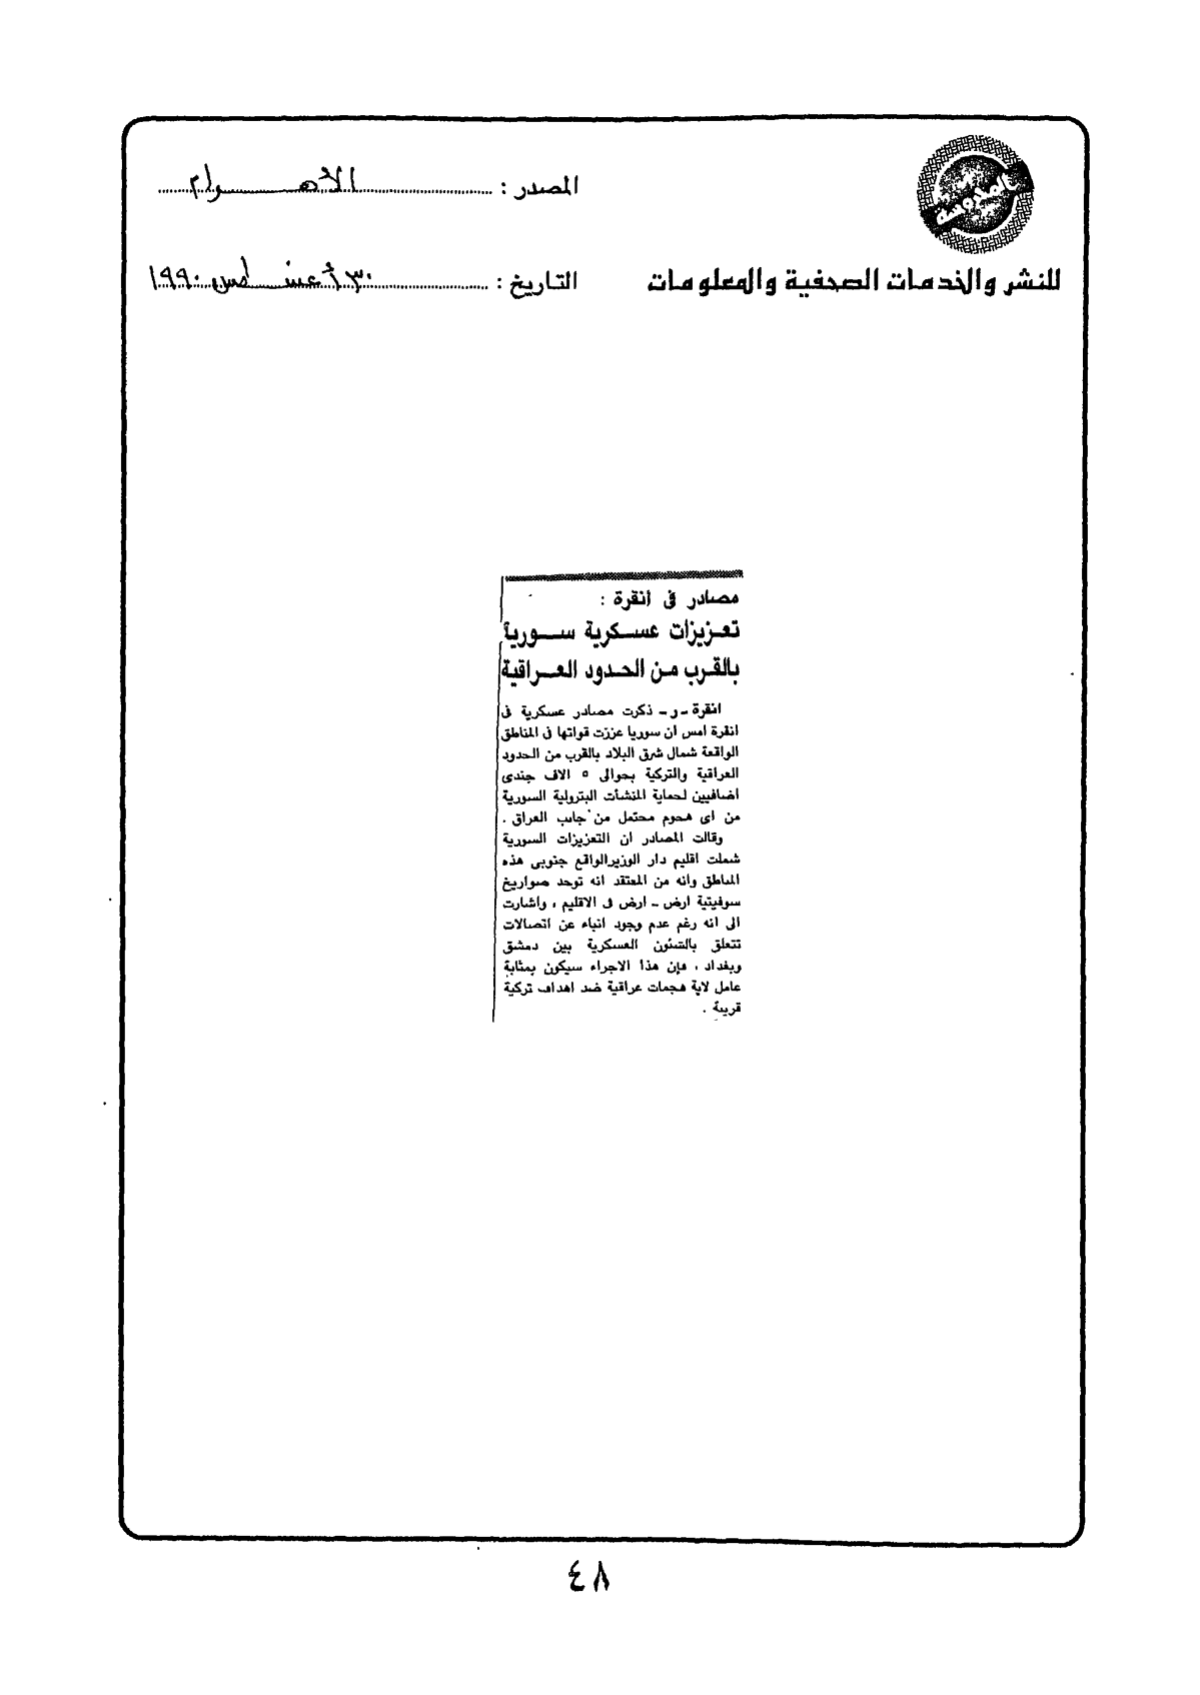 المصدر : الأهرام
للنشر والخدمات الصحفية والمعلومات
التاريخ : ٣٠ أغسطس ١٩٩٠
مصادر فى انقرة :
تعزيزات عسكرية سورية
بالقرب من الحدود العراقية
انقرة ـ ر ـ ذكرت مصادر عسكرية فى
انقرة امس ان سوريا عززت قواتها فى المناطق
الواقعة شمال شرق البلاد بالقرب من الحدود
العراقية والتركية بحوالى ٥ الاف جندى
اضافيين لحماية المنشأت البترولية السورية
من اى هجوم محتمل من جانب العراق .
وقالت المصادر ان التعزيزات السورية
شملت اقليم دار الوزير الواقع جنوبى هذه
المناطق وانه من المعتقد انه توجد صواريخ
سوفيتية ارض ـ ارض فى الاقليم ، واشارت
الى انه رغم عدم وجود انباء عن اتصالات
تتعلق بالشئون العسكرية بين دمشق
وبغداد ، فإن هذا الاجراء سيكون بمثابة
عامل لاية هجمات عراقية ضد اهداف تركية
قريبة .
٤٨